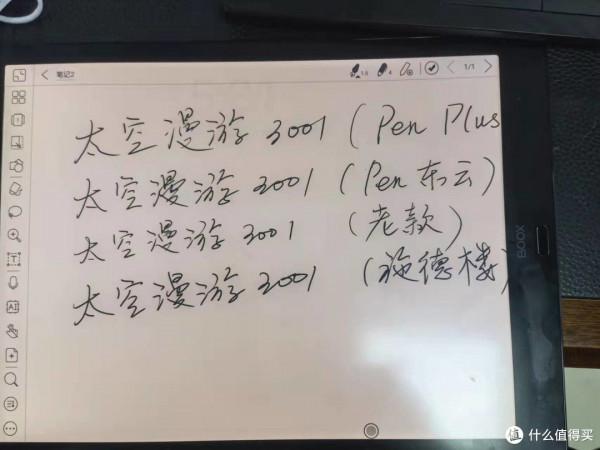 笔记2 1.0 4 1/1
太空漫游 3001 (Pen Plus
太空漫游 3001 (Pen 东云)
太空漫游 3001 (老款)
太空漫游 3001 (施德楼)
T
AI
BOOX
值 什么值得买